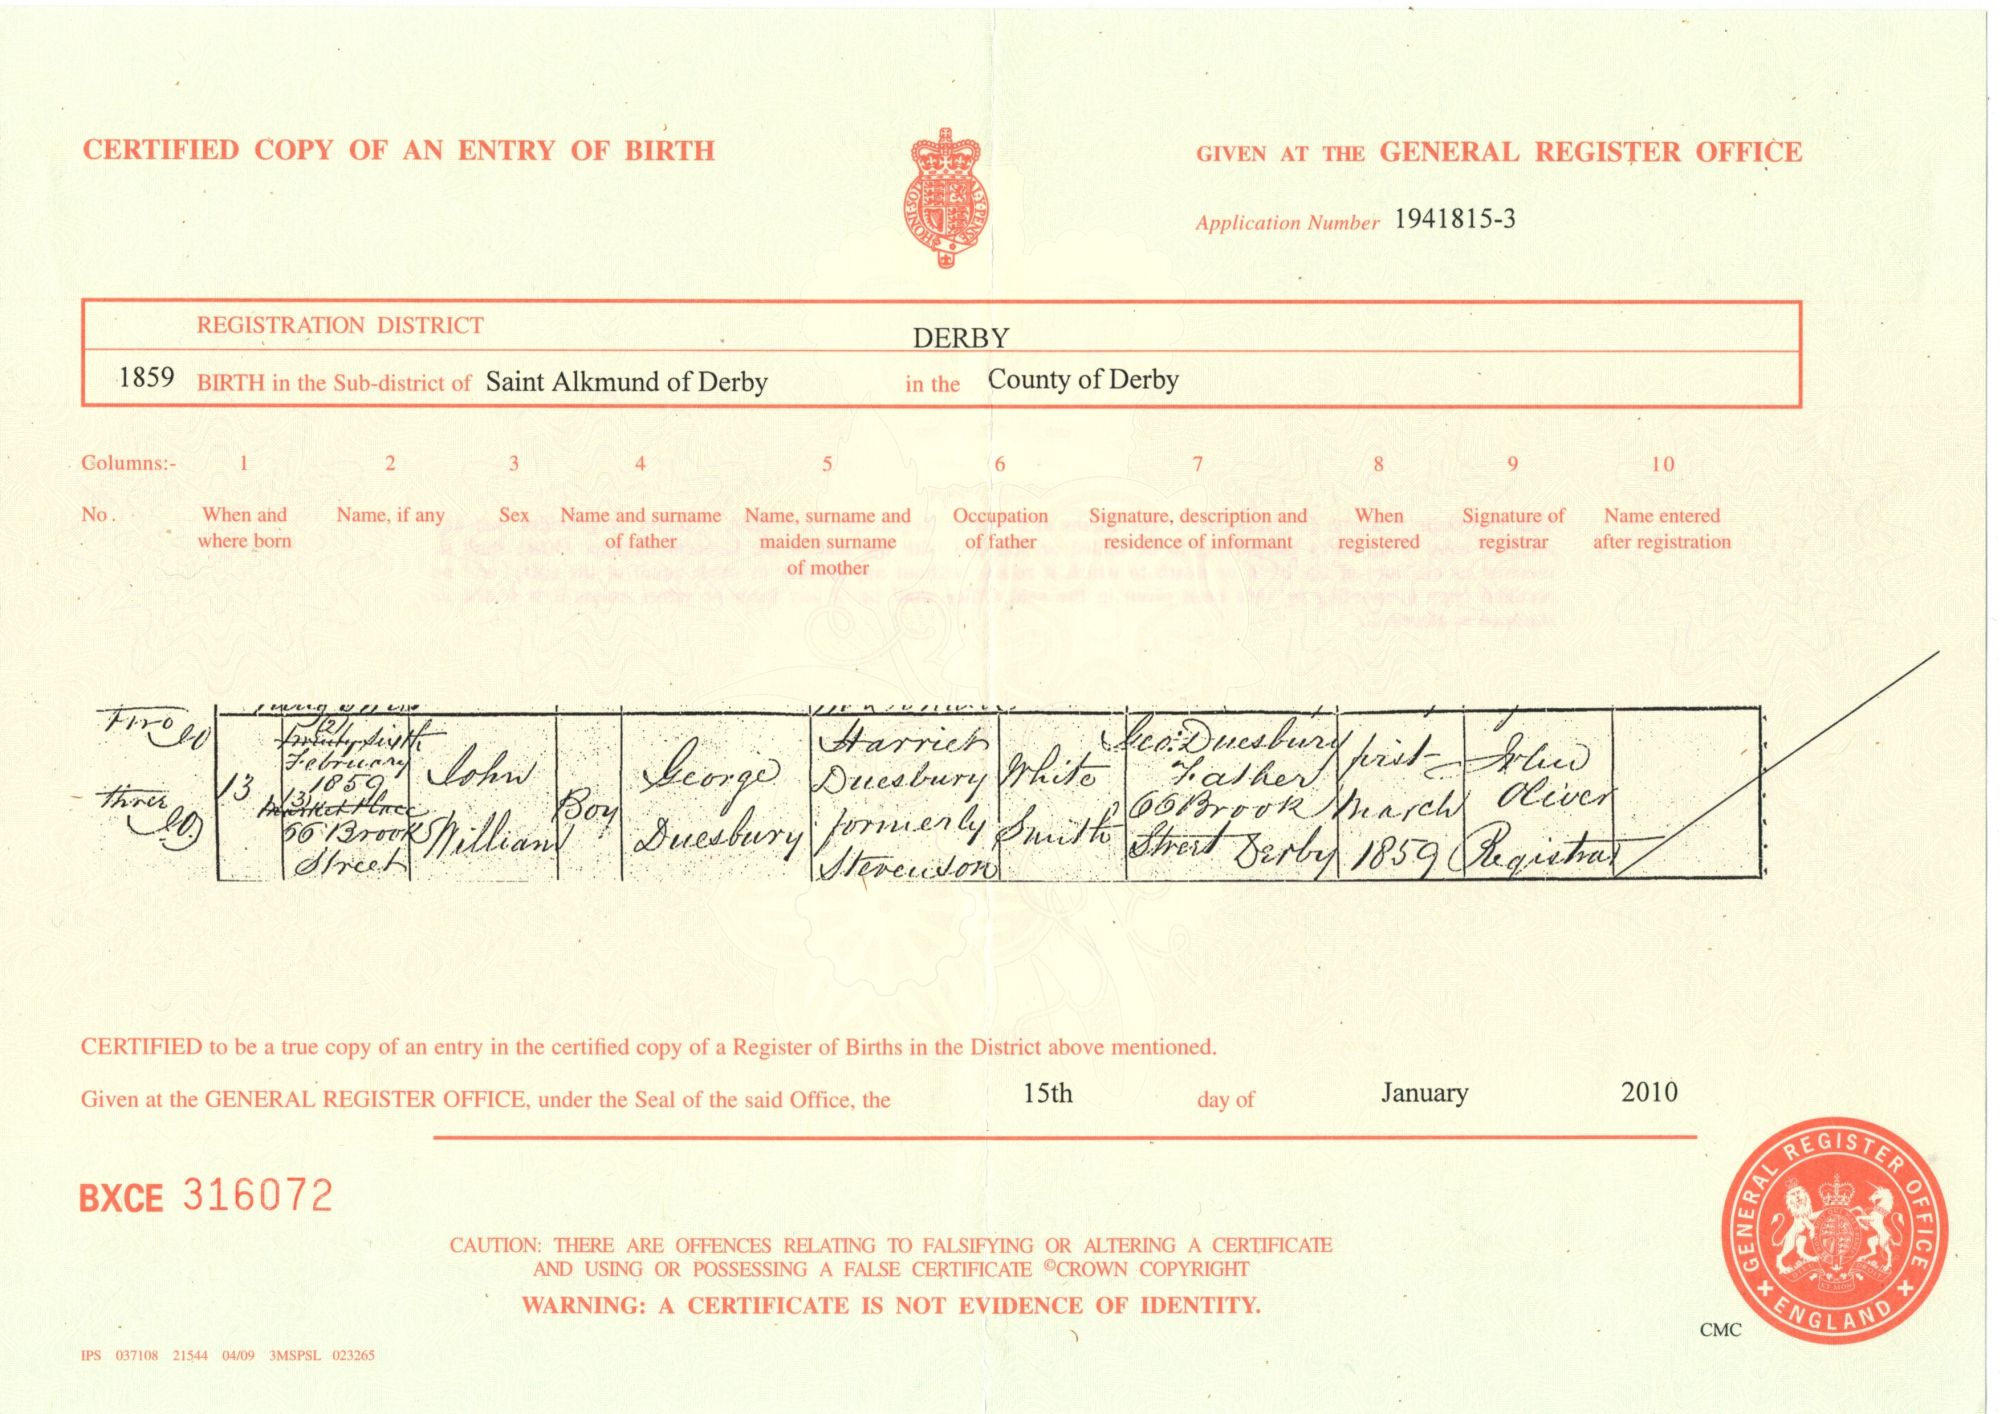 CERTIFIED COPY OF AN ENTRY OF BIRTH
GIVEN AT THE GENERAL REGISTER OFFICE
Application Number 1941815-3
REGISTRATION DISTRICT DERBY
1859 BIRTH in the Sub-district of Saint Alkmund of Derby in the County of Derby
Columns:- 1 2 3 4 5 6 7 8 9 10
No. When and where born
Name, if any
Sex
Name and surname of father
Name, surname and maiden surname of mother
Occupation of father
Signature, description and residence of informant
When registered
Signature of registrar
Name entered after registration
Two
three
13
Twenty Sixth
February
1859
Market Place
66 Brook
Street
John
William
Boy
George
Duesbury
Harriet
Duesbury
formerly
Stevenson
White
Smith
Geo: Duesbury
Father
66 Brook
Street Derby
first
March
1859
John
Oliver
Registrar
CERTIFIED to be a true copy of an entry in the certified copy of a Register of Births in the District above mentioned.
Given at the GENERAL REGISTER OFFICE, under the Seal of the said Office, the 15th day of January 2010
BXCE 316072
CAUTION: THERE ARE OFFENCES RELATING TO FALSIFYING OR ALTERING A CERTIFICATE
AND USING OR POSSESSING A FALSE CERTIFICATE ©CROWN COPYRIGHT
WARNING: A CERTIFICATE IS NOT EVIDENCE OF IDENTITY.
GENERAL REGISTER OFFICE
ENGLAND
CMC
IPS 037108 21544 04/09 3MSPSL 023265